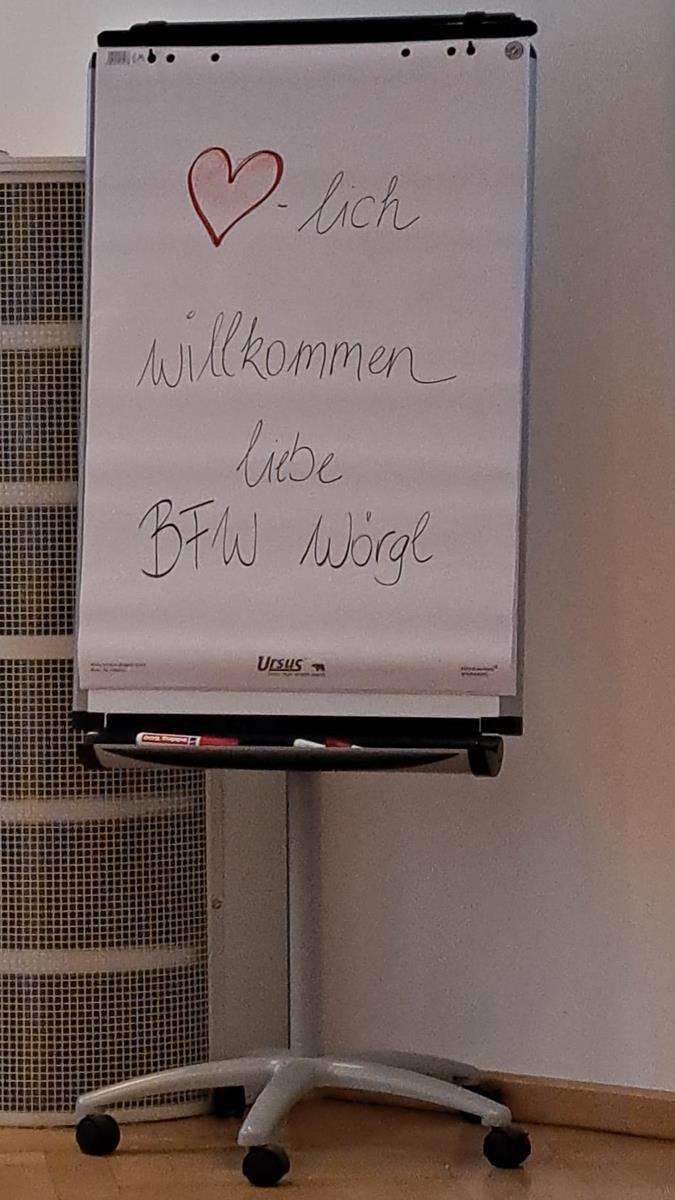 ❤-lich
willkommen
liebe
BFW Wörgl
Ursus